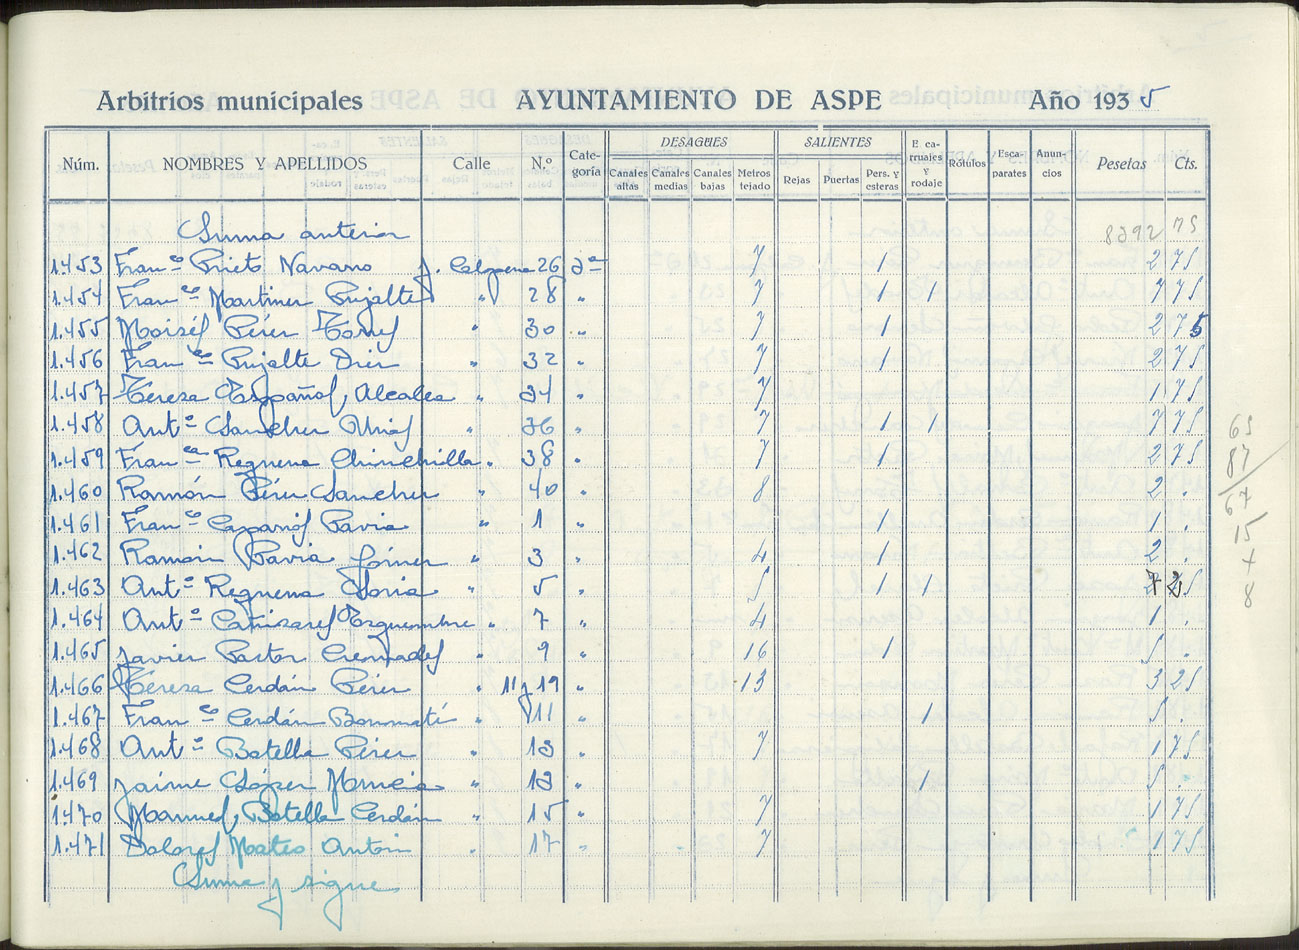 Arbitrios municipales AYUNTAMIENTO DE ASPE Año 1935
Núm. NOMBRES Y APELLIDOS Calle N.º Cate-goría DESAGÜES Canales altas Canales medias Canales bajas Metros tejado SALIENTES Rejas Puertas Pers. y esteras E ca-rruajes y rodaje Rótulos Esca-parates Anun-cios Pesetas Cts.
Suma anterior 8392 75
1.453 Fran.co Prieto Navarro J. Calpena 26 3ª 7 1 2 75
1.454 Fran.co Martinez Pujalte " 28 " 7 1 1 7 75
1.455 Moisés Pérez Torres " 30 " 7 1 2 75
1.456 Fran.co Pujalte Diez " 32 " 7 1 2 75
1.457 Teresa Español Alcolea " 34 " 7 1 75
1.458 Ant.º Sanchez Mas " 36 " 7 1 1 7 75
1.459 Fran.ca Reguena Chinchilla " 38 " 7 1 2 75
1.460 Ramón Pérez Sanchez " 40 " 8 2 "
1.461 Fran.co Pavia " 1 " 1 1 "
1.462 Ramón Pavia Gómez " 3 " 4 1 2 "
1.463 Ant.º Reguena Soria " 5 " 5 1 1 7 25
1.464 Ant.º Cañizares " 7 " 4 1 "
1.465 Javier Pastor Cremades " 9 " 16 1 5 "
1.466 Teresa Cerdán Pérez " 11 y 19 " 13 3 25
1.467 Fran.co Cerdán Bonmatí " 11 " 1 5 "
1.468 Ant.º Botella Pérez " 13 " 7 1 75
1.469 Jaime López Murcia " 13 " 1 5 "
1.470 Manuel Botella Cerdán " 15 " 7 1 75
1.471 Dolores Mateo Antón " 17 " 7 1 75
Suma y sigue
65
87
67
15
4
8